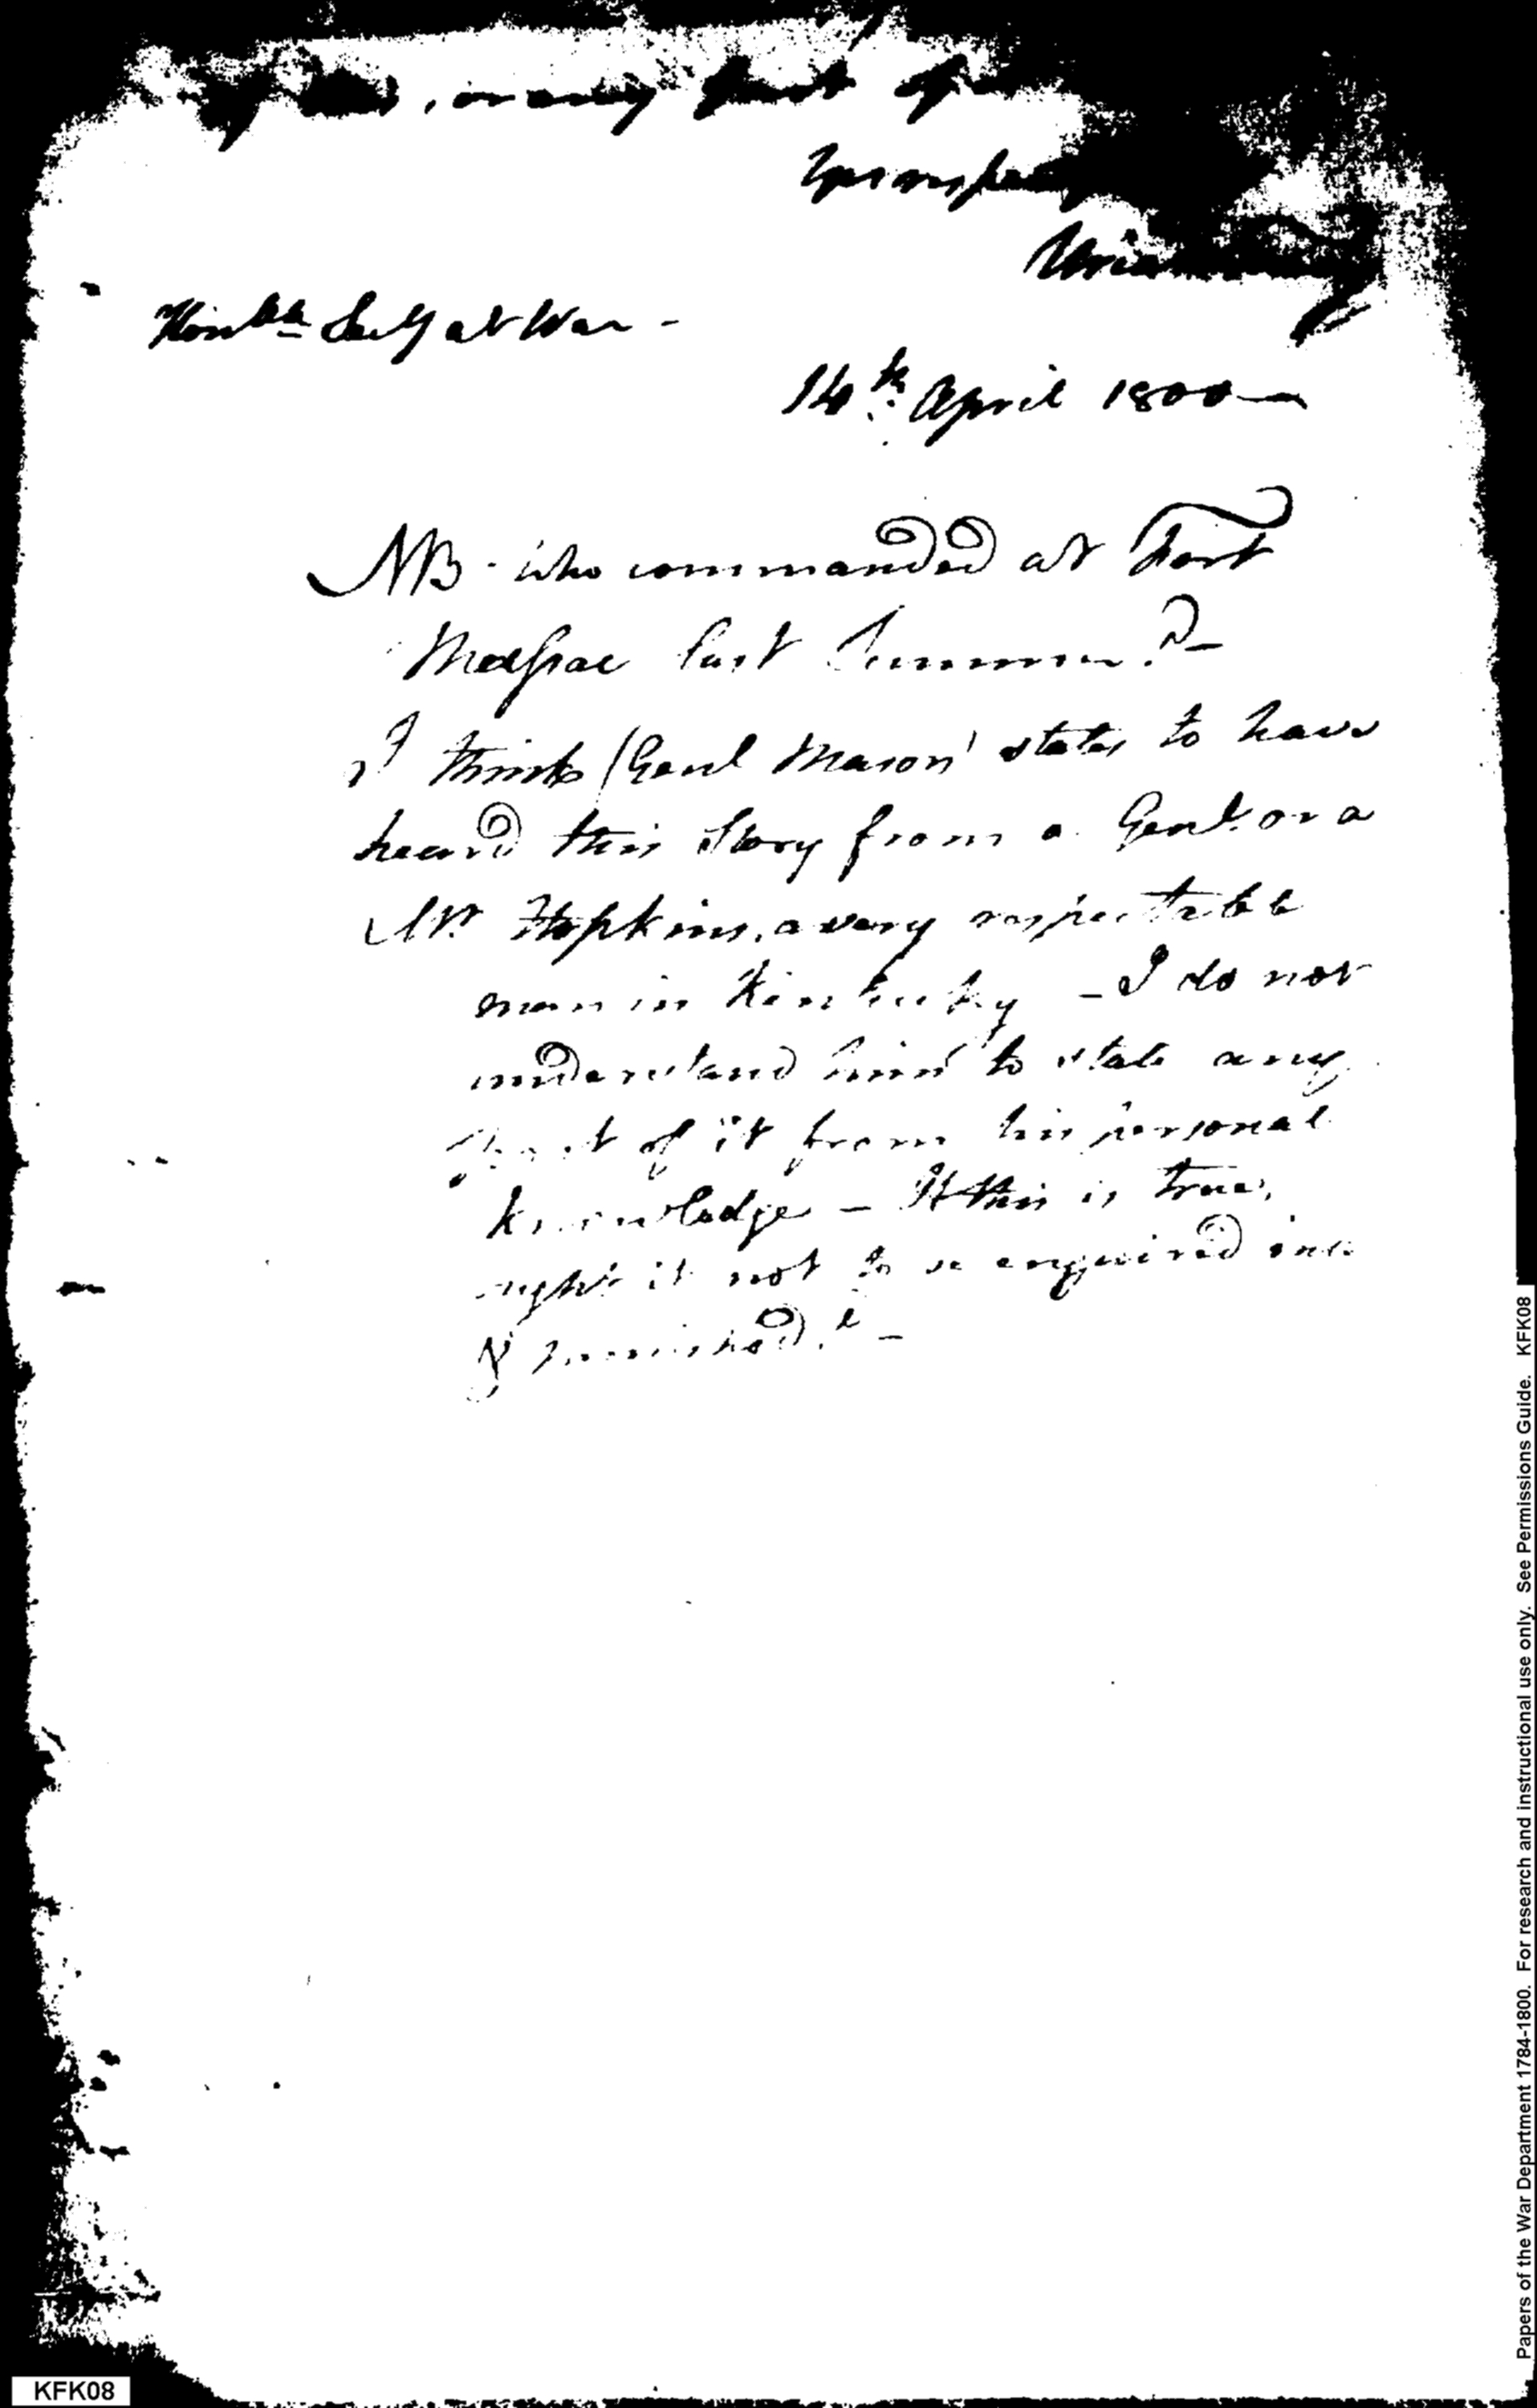 , or any part of
Honble Secy at War -
14th April 1800
NB - who commanded at Fort
Massac last Summer? -
I think (Genl Mason) states to have
heard this Story from a Genl. or a
Mr Hopkins, a very respectable
man in Kentucky - I do not
understand him to state any
part of it from his personal
knowledge - If this is true,
ought it not to be enquired into
& punished? -
Papers of the War Department 1784-1800. For research and instructional use only. See Permissions Guide. KFK08
KFK08